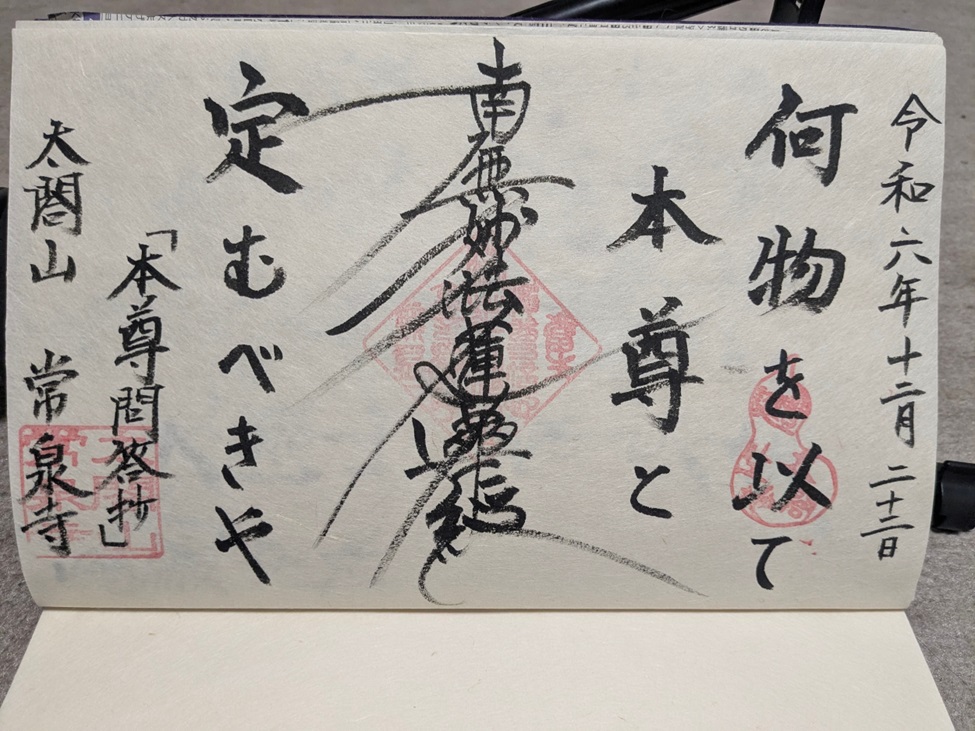 令和六年十二月 二十二日
何物を以て
本尊と
南無妙法蓮華經
定むべきや
「本尊問答抄」
太閤山 常泉寺